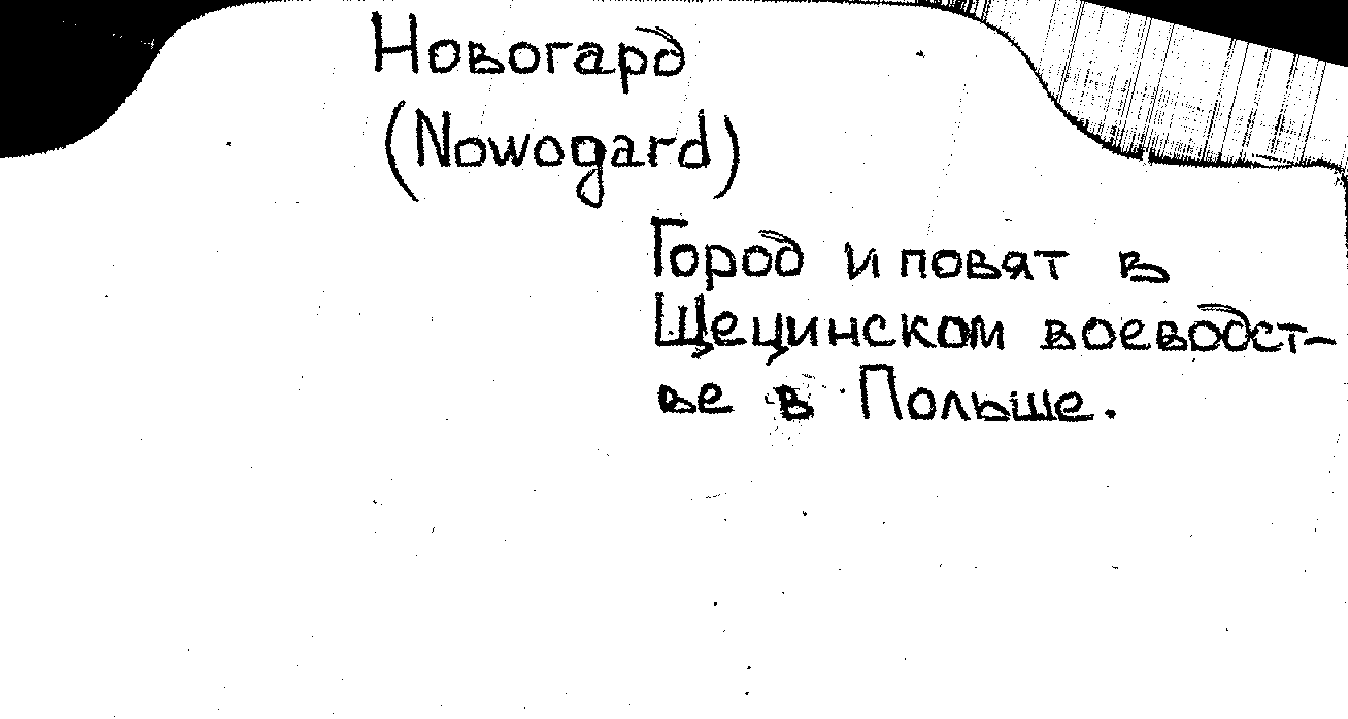 Новогард
(Nowogard)
Город и повят в
Щецинском воеводст-
ве в Польше.